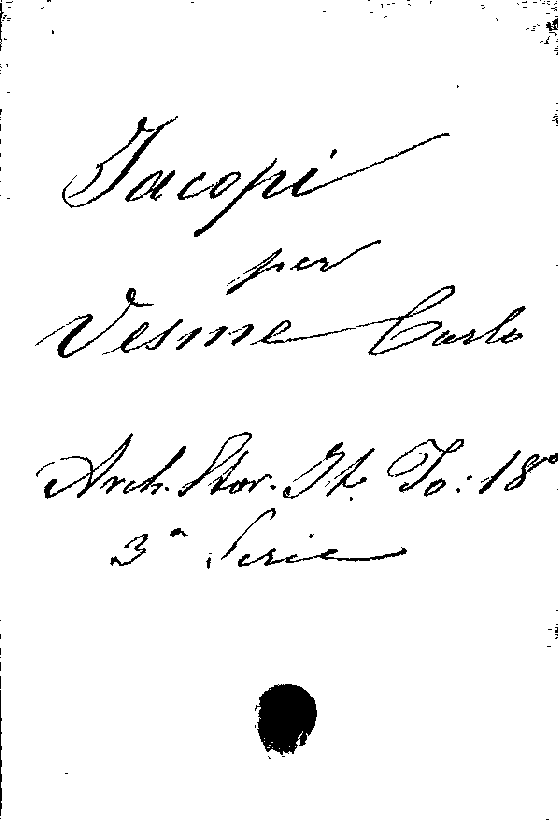 Jacopi
per
Vesme Carlo
Arch. Stor. It. To: 18º
3ª Serie